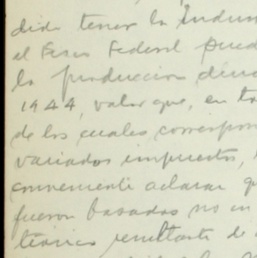 dido tener la Indus
el Fisco Federal pued
la producción
1944, valor que, en to
de los cuales correspon
variados impuestos,
conveniente aclarar q
fueron basados no en
teórica resultante de